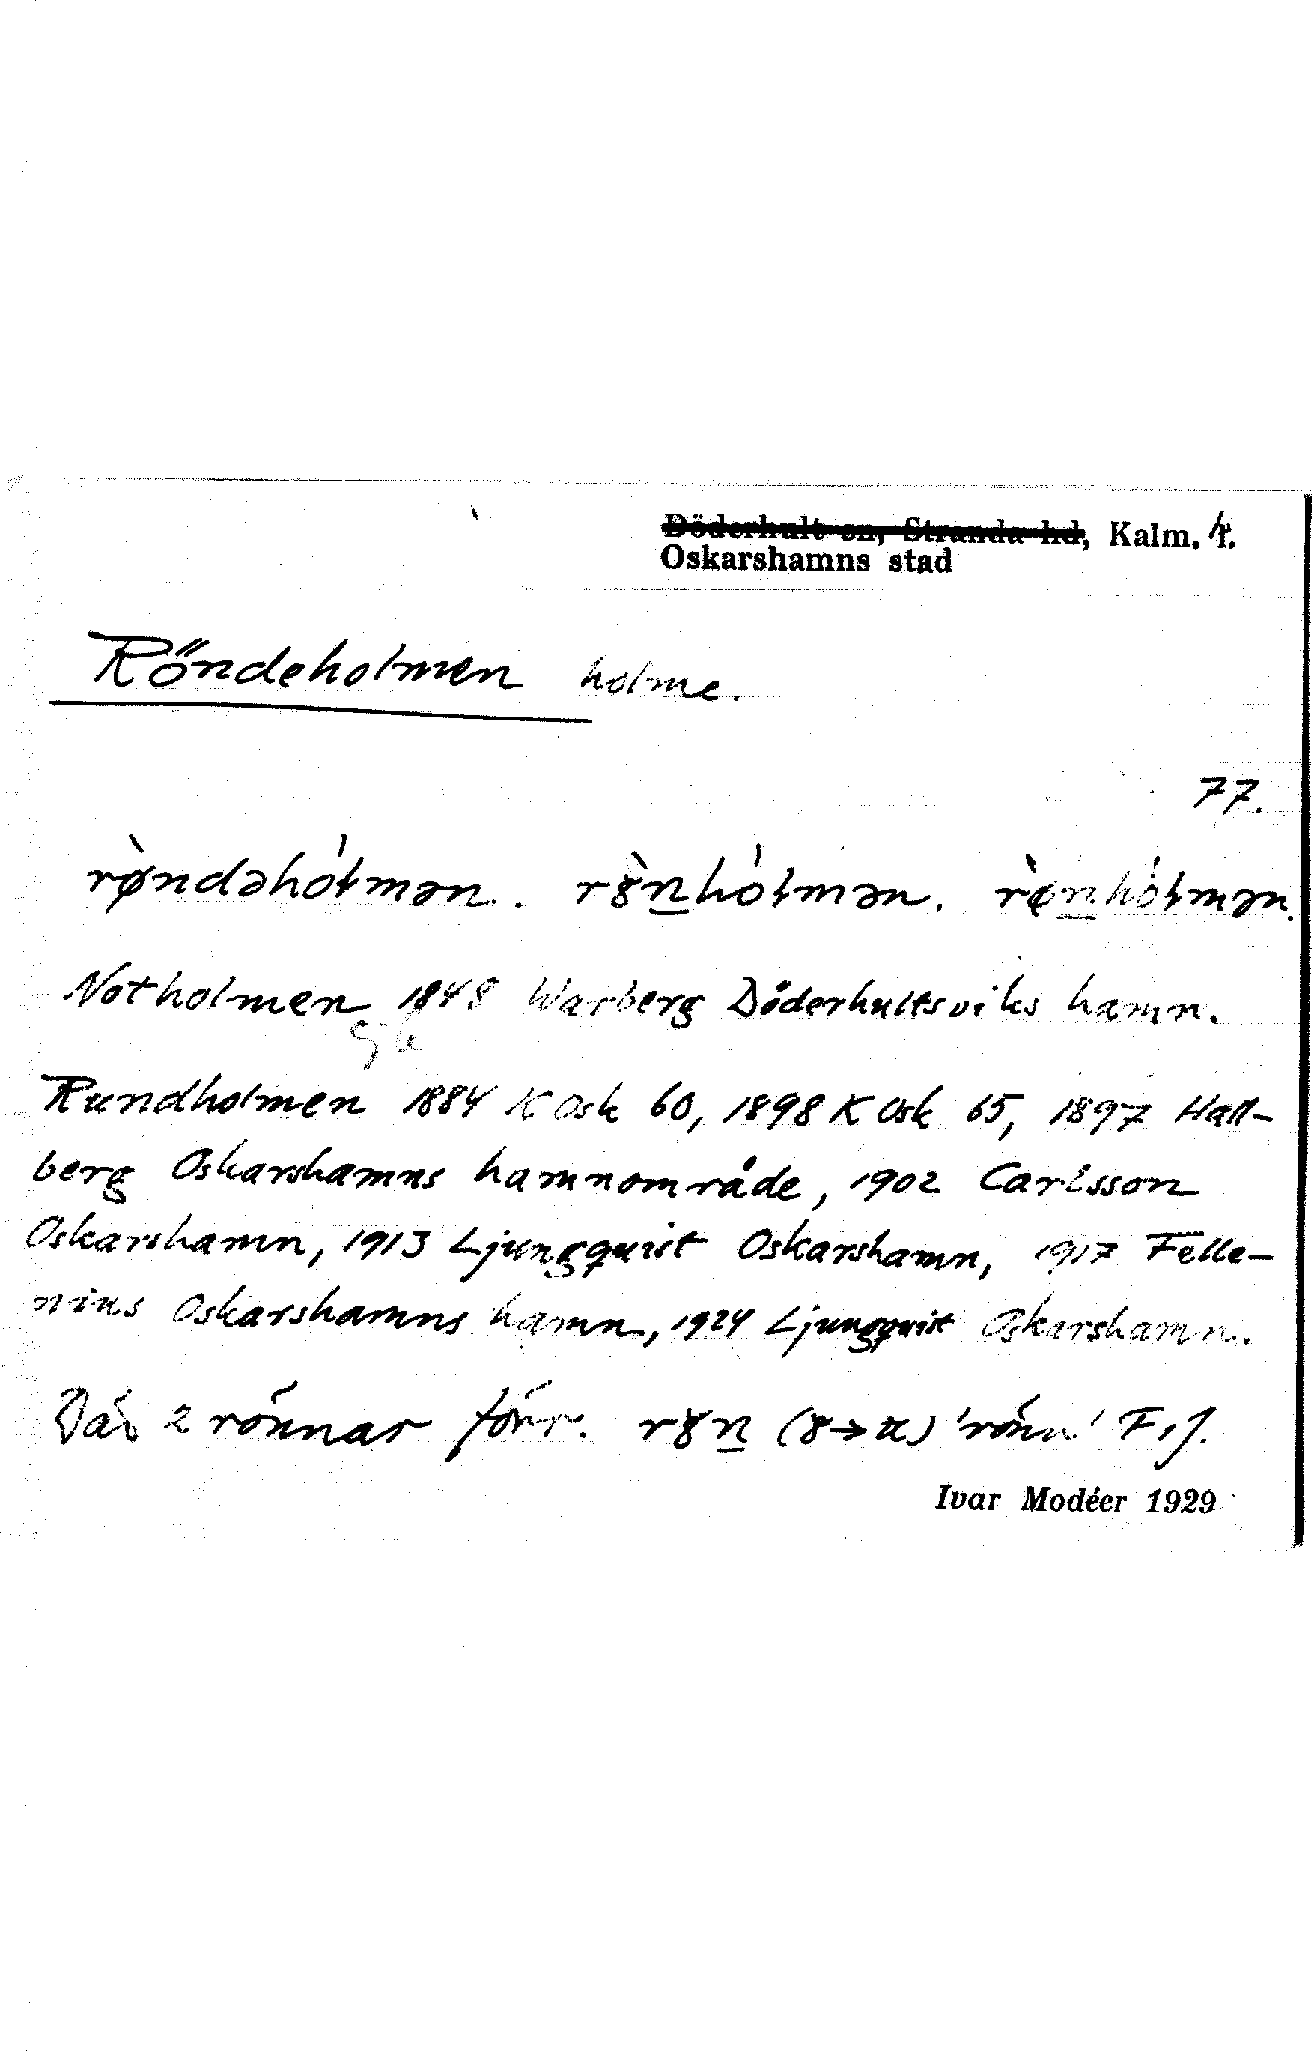 Döderhult sn, Stranda hd, Kalm. l.
Oskarshamns stad
Röndeholmen holme.
77.
rø̀ndəhòɫmən. r൪̀n̲hòɫmən. rø̀n̲hòɫmən.
Notholmen 1848 Warberg Döderhultsviks hamn.
Rundholmen 1884 K Osk 60, 1898 K Osk 65, 1897 Hall-
berg Oskarshamns hamnområde, 1902 Carlsson
Oskarshamn, 1913 Ljungquist Oskarshamn, 1917 Felle-
nius Oskarshamns hamn, 1924 Ljungquist Oskarshamn.
2 rönnar förr. 'rönn'
Ivar Modéer 1929